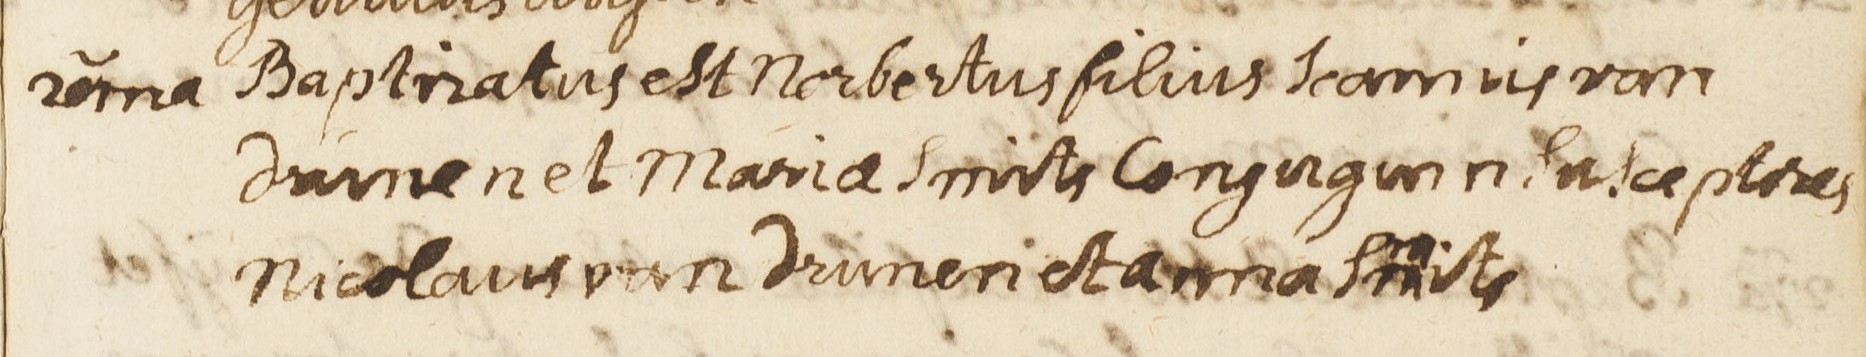 20ma Baptizatus est Norbertus filius Joannis van
drunen et Mariæ Smits Conjugum Susceptores
Nicolaus van Drunen et anna Smits